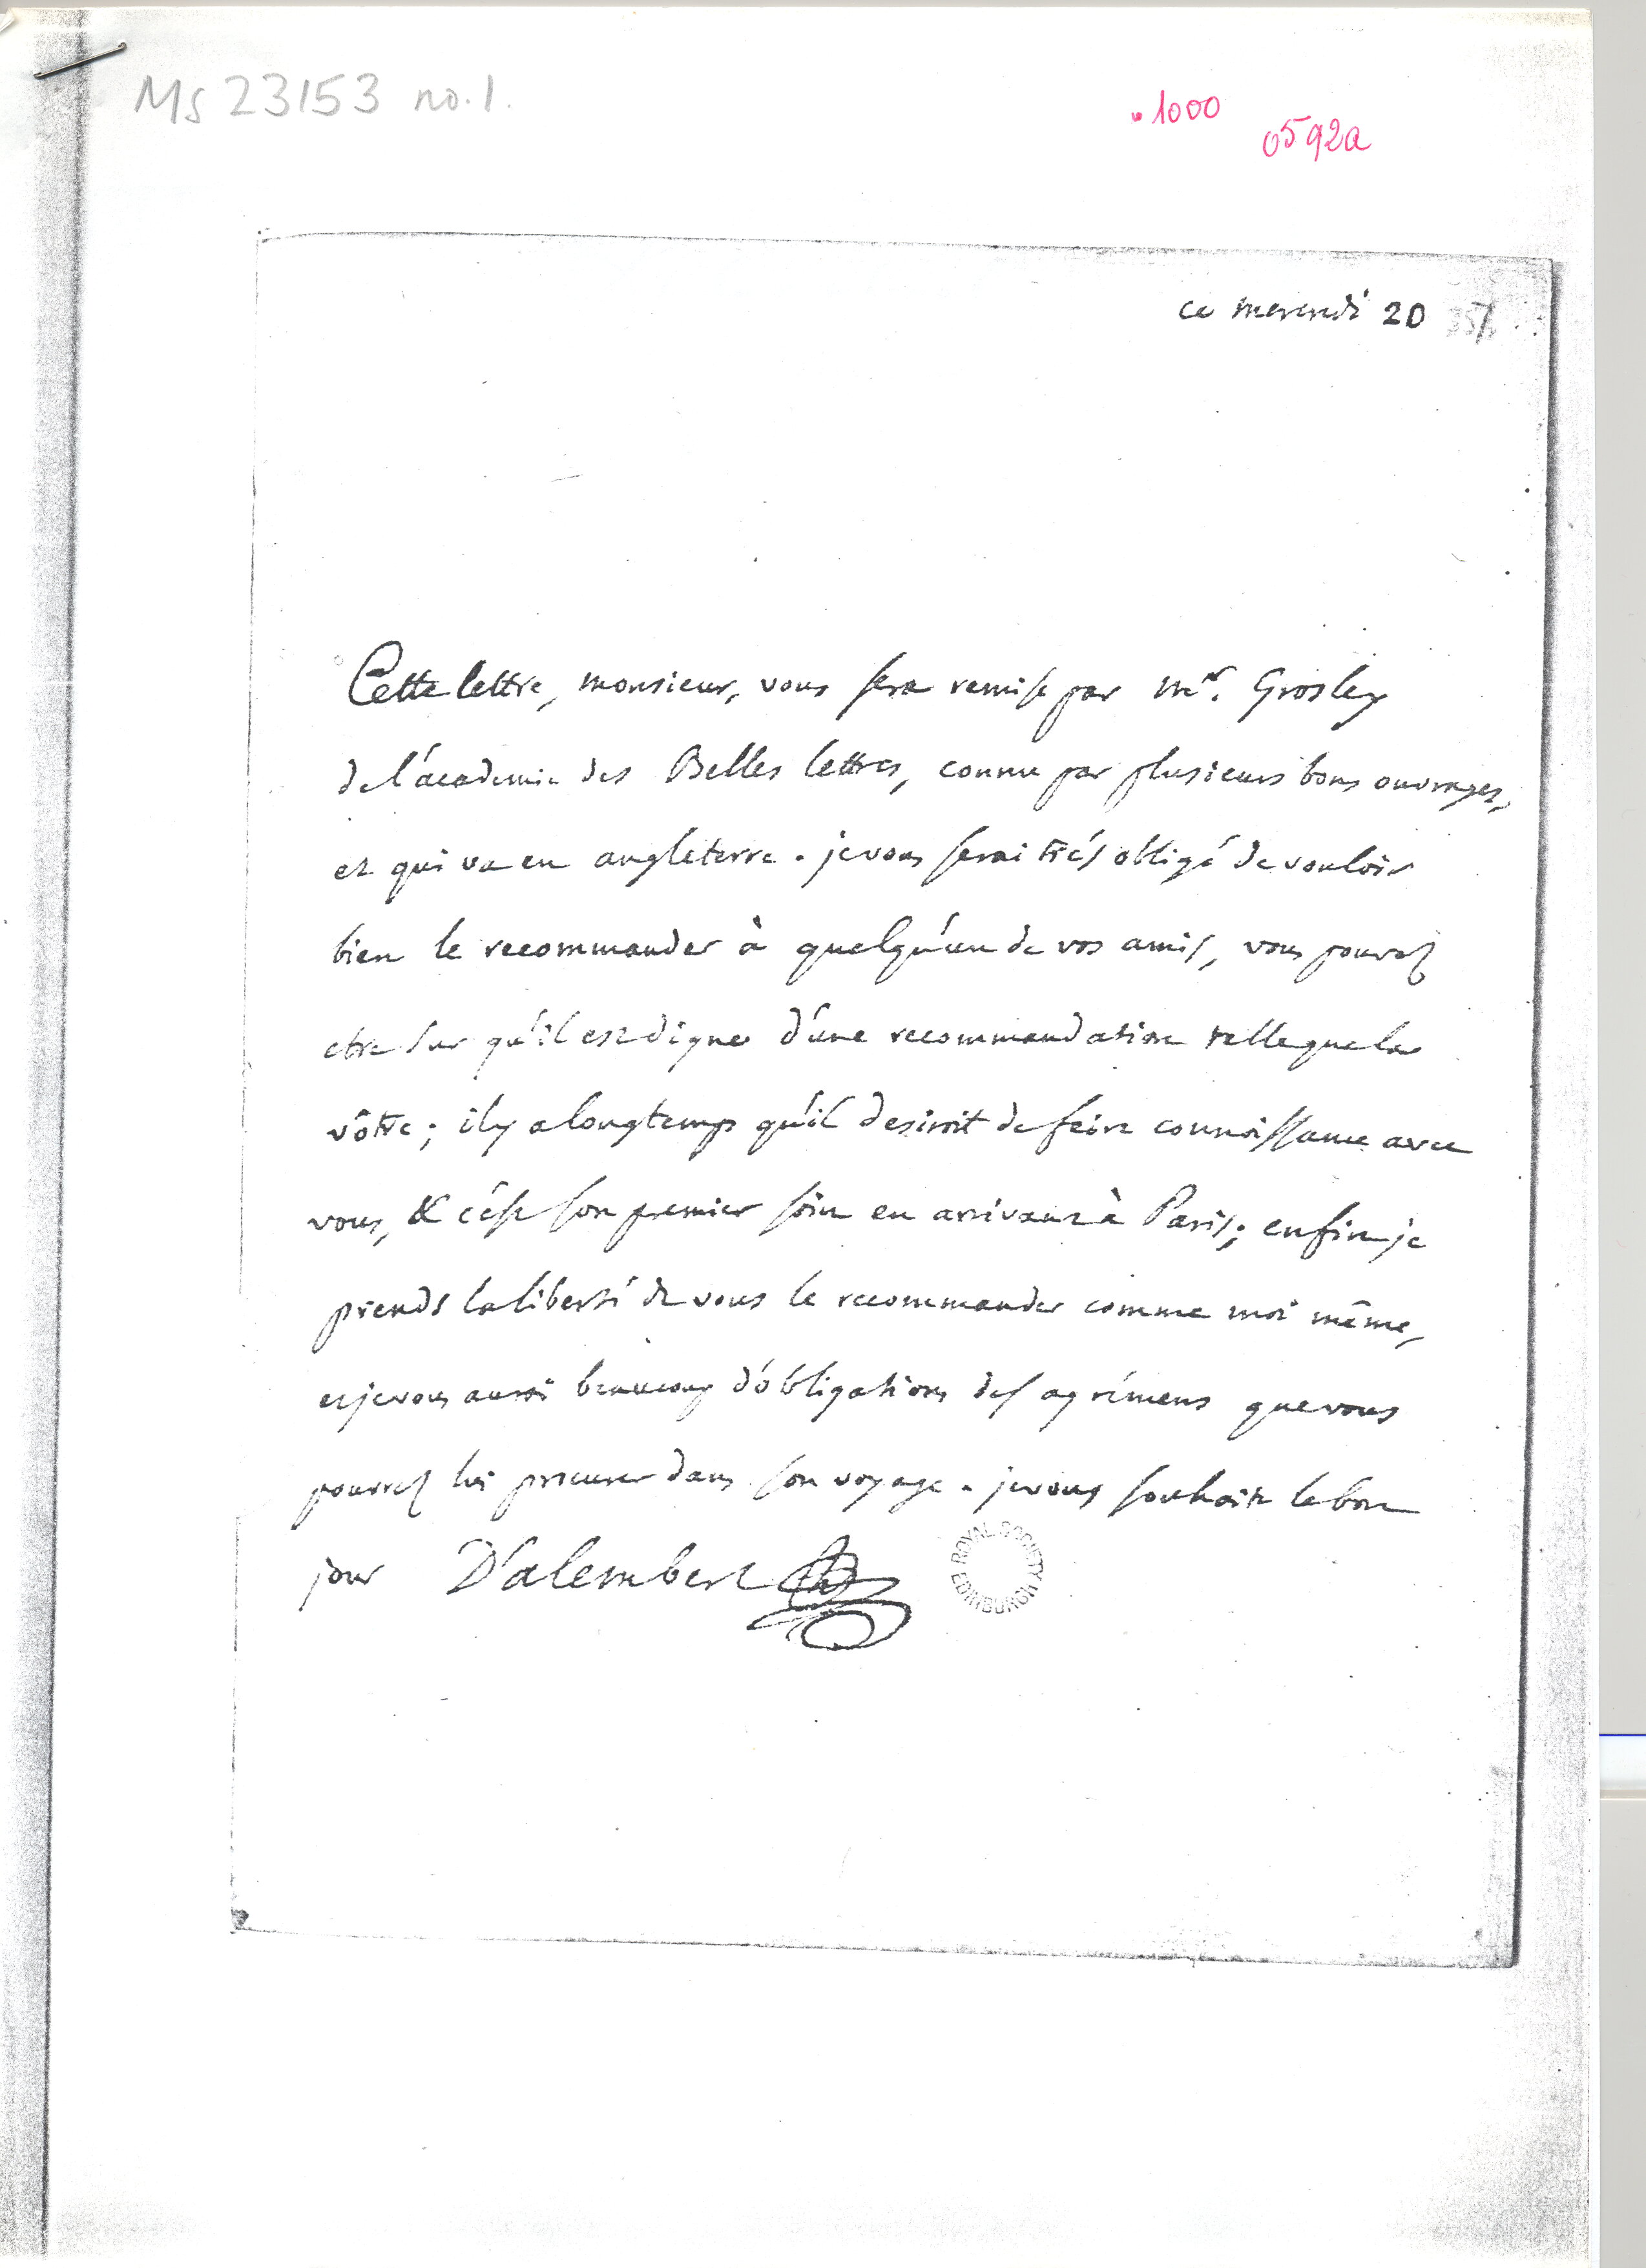 Ms 23153 no. 1.
1000
0592a
ce mercredi 20
Cette lettre, monsieur, vous sera remise par mr. Grosley
de l'academie des Belles lettres, connu par plusieurs bons ouvrages,
et qui va en angleterre. je vous serai très obligé de vouloir
bien le recommander à quelqu'un de vos amis, vous pouvez
etre sur qu'il est digne d'une recommandation telle que la
vôtre; il y a longtemps qu'il desiroit de faire connoissance avec
vous, & c'est son premier soin en arrivant à Paris; enfin je
prends la liberté de vous le recommander comme moi même,
et je vous aurai beaucoup d'obligations des agrémens que vous
pourrez lui procurer dans son voyage. je vous souhaite le bon
jour D'alembert
ROYAL SOCIETY EDINBURGH